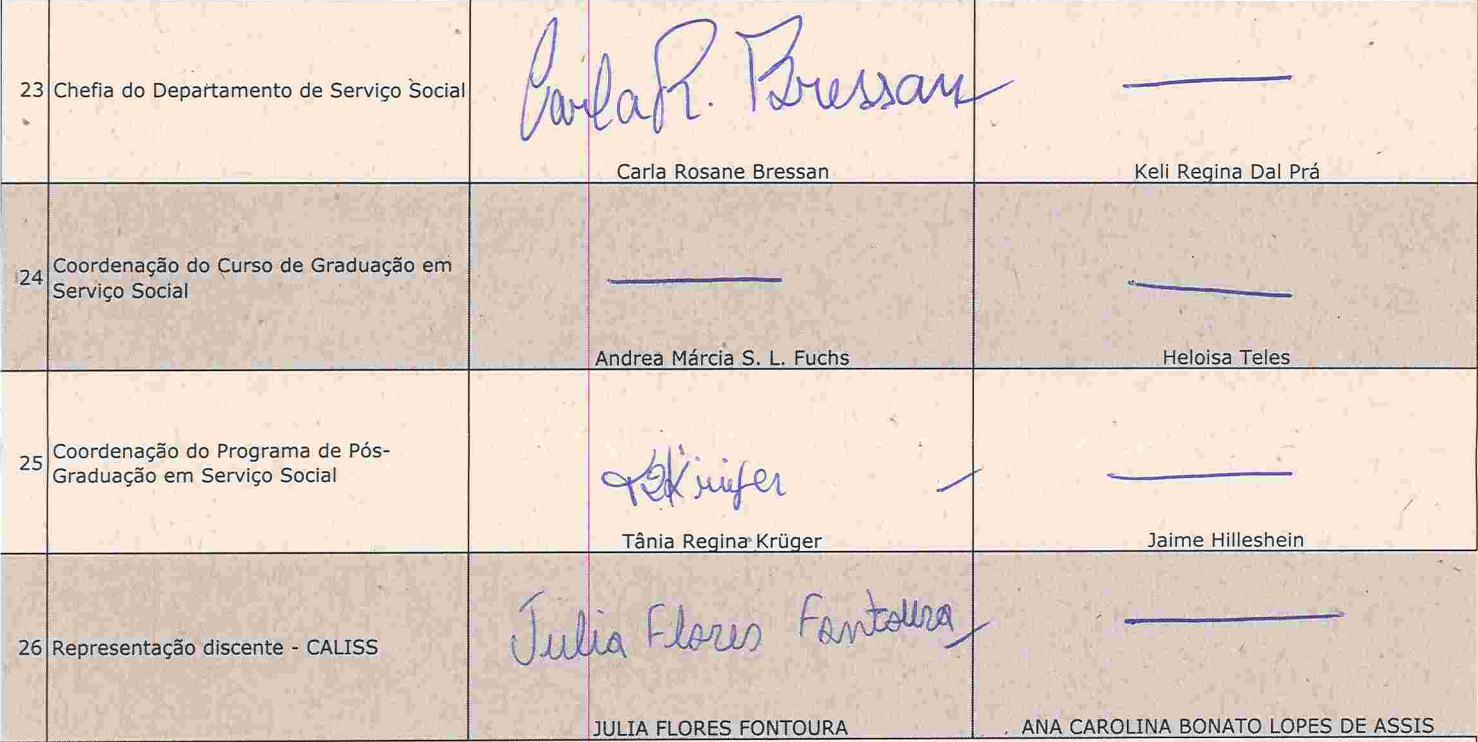 23 Chefia do Departamento de Serviço Social
Carla R. Bressan
Carla Rosane Bressan
Keli Regina Dal Prá
24 Coordenação do Curso de Graduação em
Serviço Social
Andrea Márcia S. L. Fuchs
Heloisa Teles
25 Coordenação do Programa de Pós-
Graduação em Serviço Social
Tânia Regina Krüger
Jaime Hilleshein
26 Representação discente - CALISS
Julia Flores Fontoura
JULIA FLORES FONTOURA
ANA CAROLINA BONATO LOPES DE ASSIS